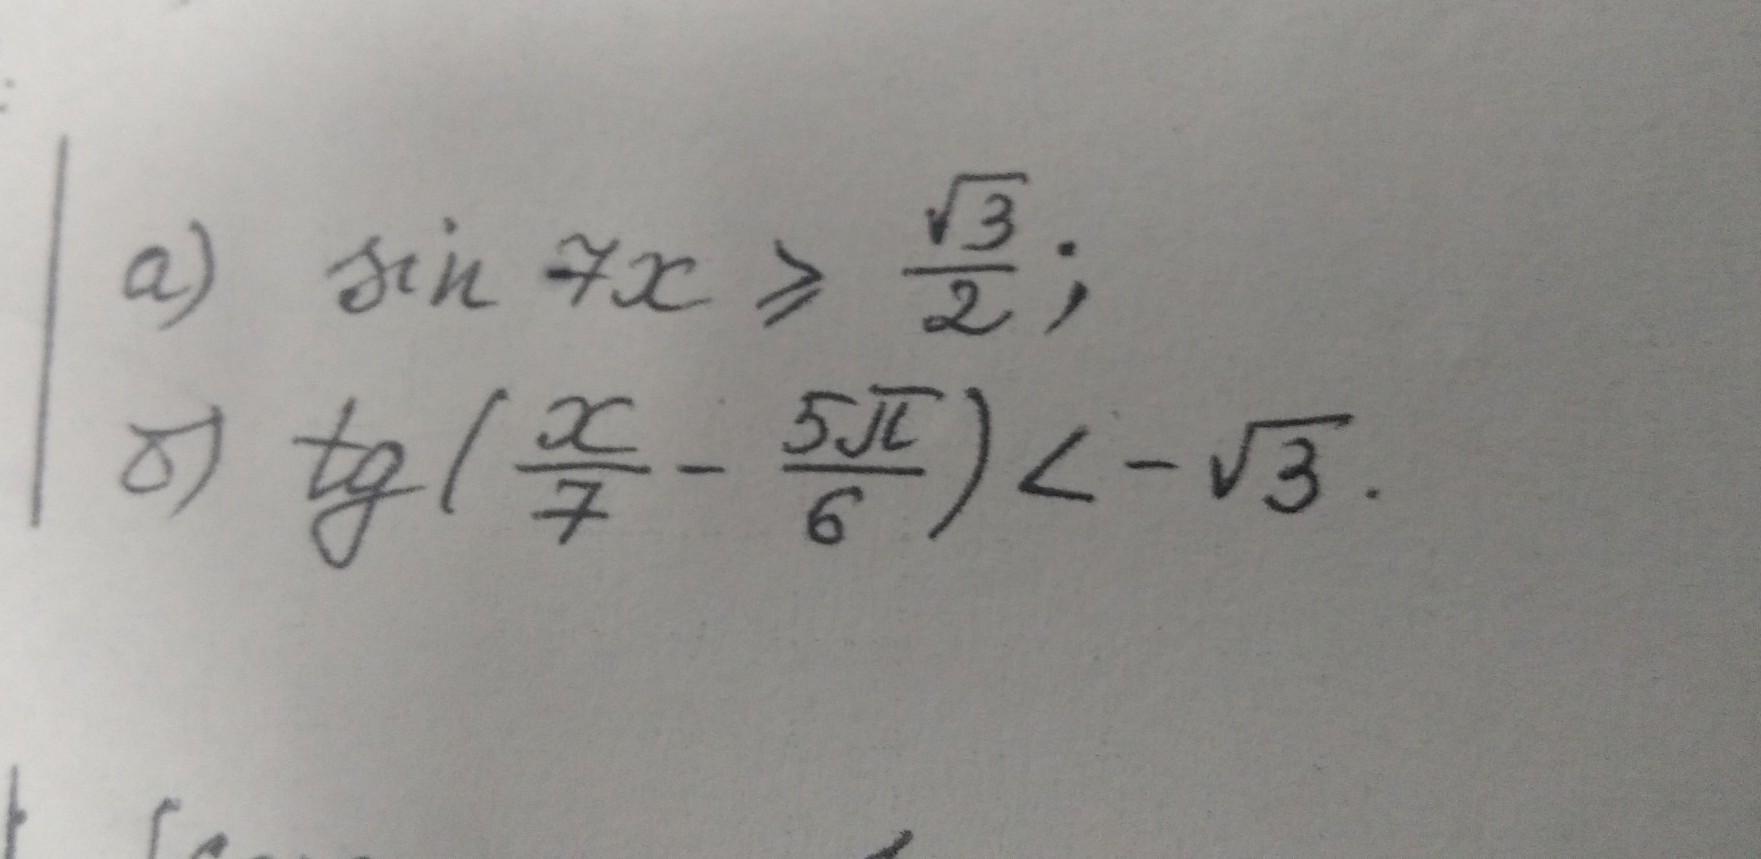 а) sin 7x ⩾ √3/2;
б) tg(x/7 - 5π/6) < -√3.